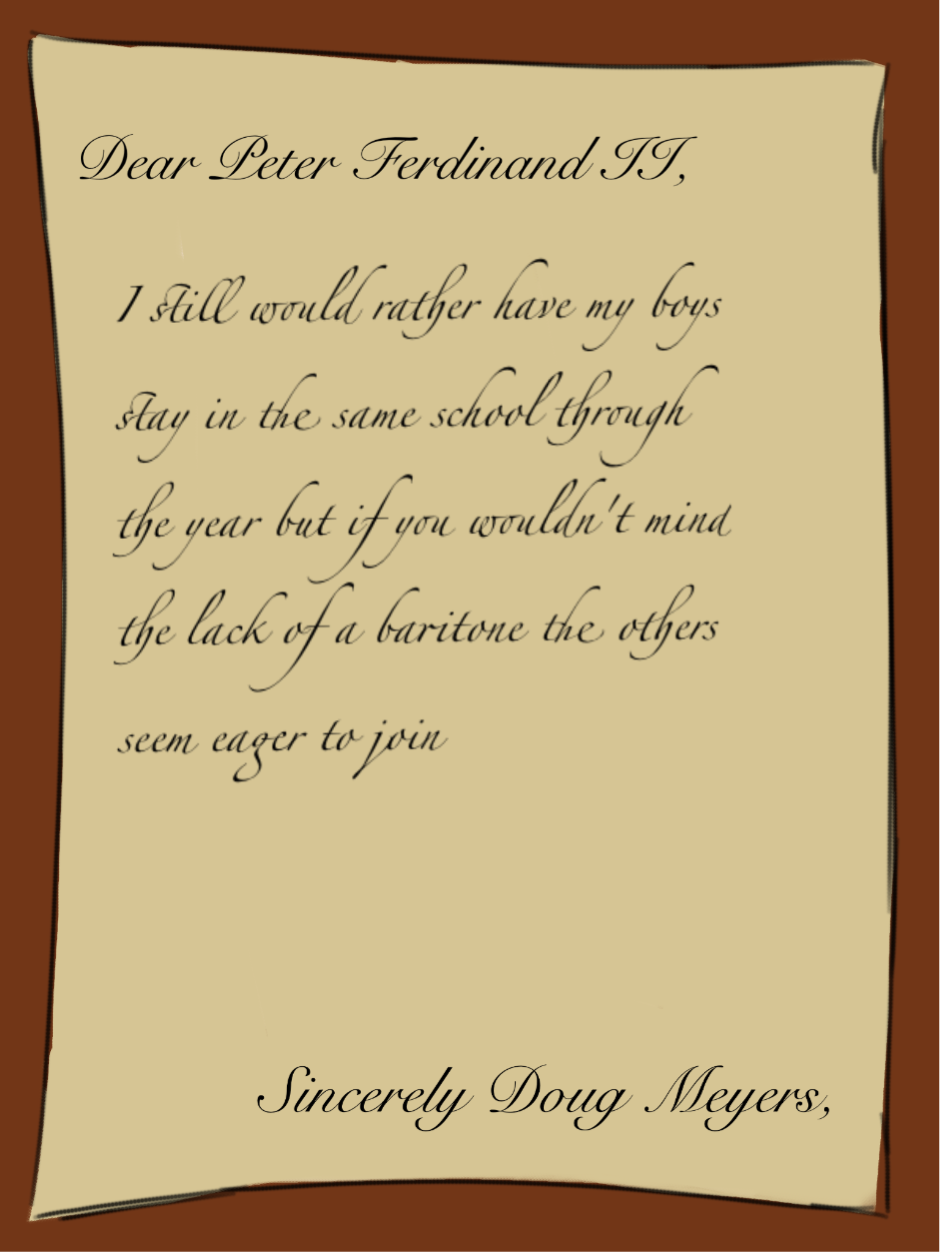 Dear Peter Ferdinand II,
I still would rather have my boys
stay in the same school through
the year but if you wouldn't mind
the lack of a baritone the others
seem eager to join
Sincerely Doug Meyers,